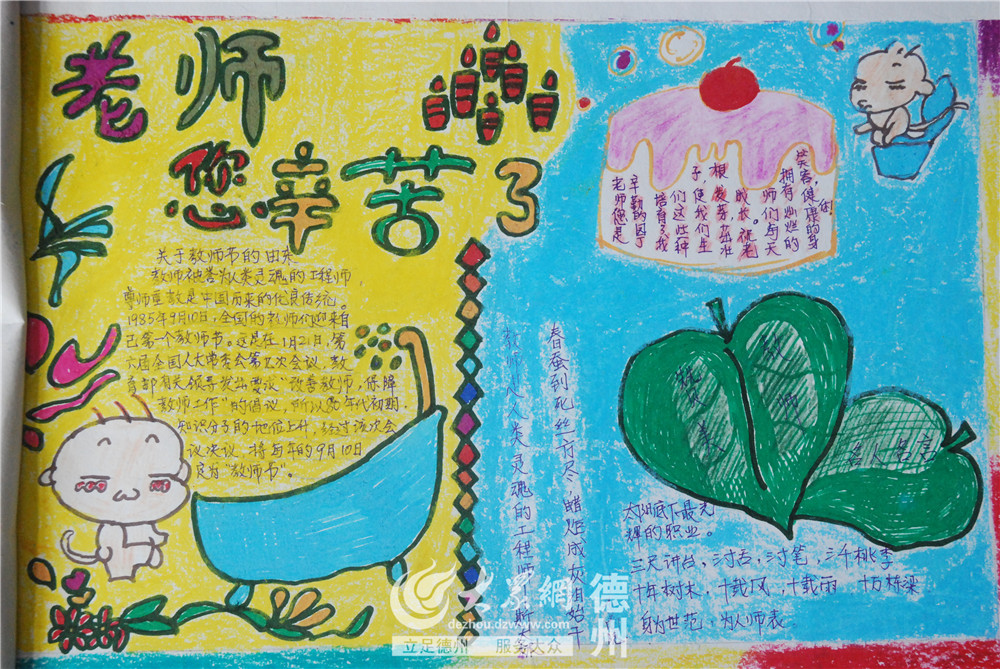 老师
您辛苦了
关于教师节的由来
教师被誉为人类灵魂的工程师,
尊师重教是中国历来的优良传统。
1985年9月10日,全国的教师们迎来自
己第一个教师节。这是在1月21日,第
六届全国人大常委会第九次会议,教
育部有关领导提出要求“改善教师,保障
教师工作”的倡议,所以80年代初期,
知识分子的地位上升,经过该次会
议决议 将每年的9月10日
定为“教师节”。
老师您是
辛勤的园丁
培育了我
们这些种
子,使我们生
根发芽,茁壮
成长。祝老
师们每天
拥有灿烂的
笑容,健康的身
春蚕到死丝方尽 蜡炬成灰泪始干
教师是人类灵魂的工程师
赞美
教师
名人名言
太阳底下最光
辉的职业。
三尺讲台,三寸舌,三寸笔,三千桃李
十年树木,十载风,十载雨,十万栋梁
身为世范,为人师表
大众網
德州
dezhou.dzwww.com
立足德州 服务大众